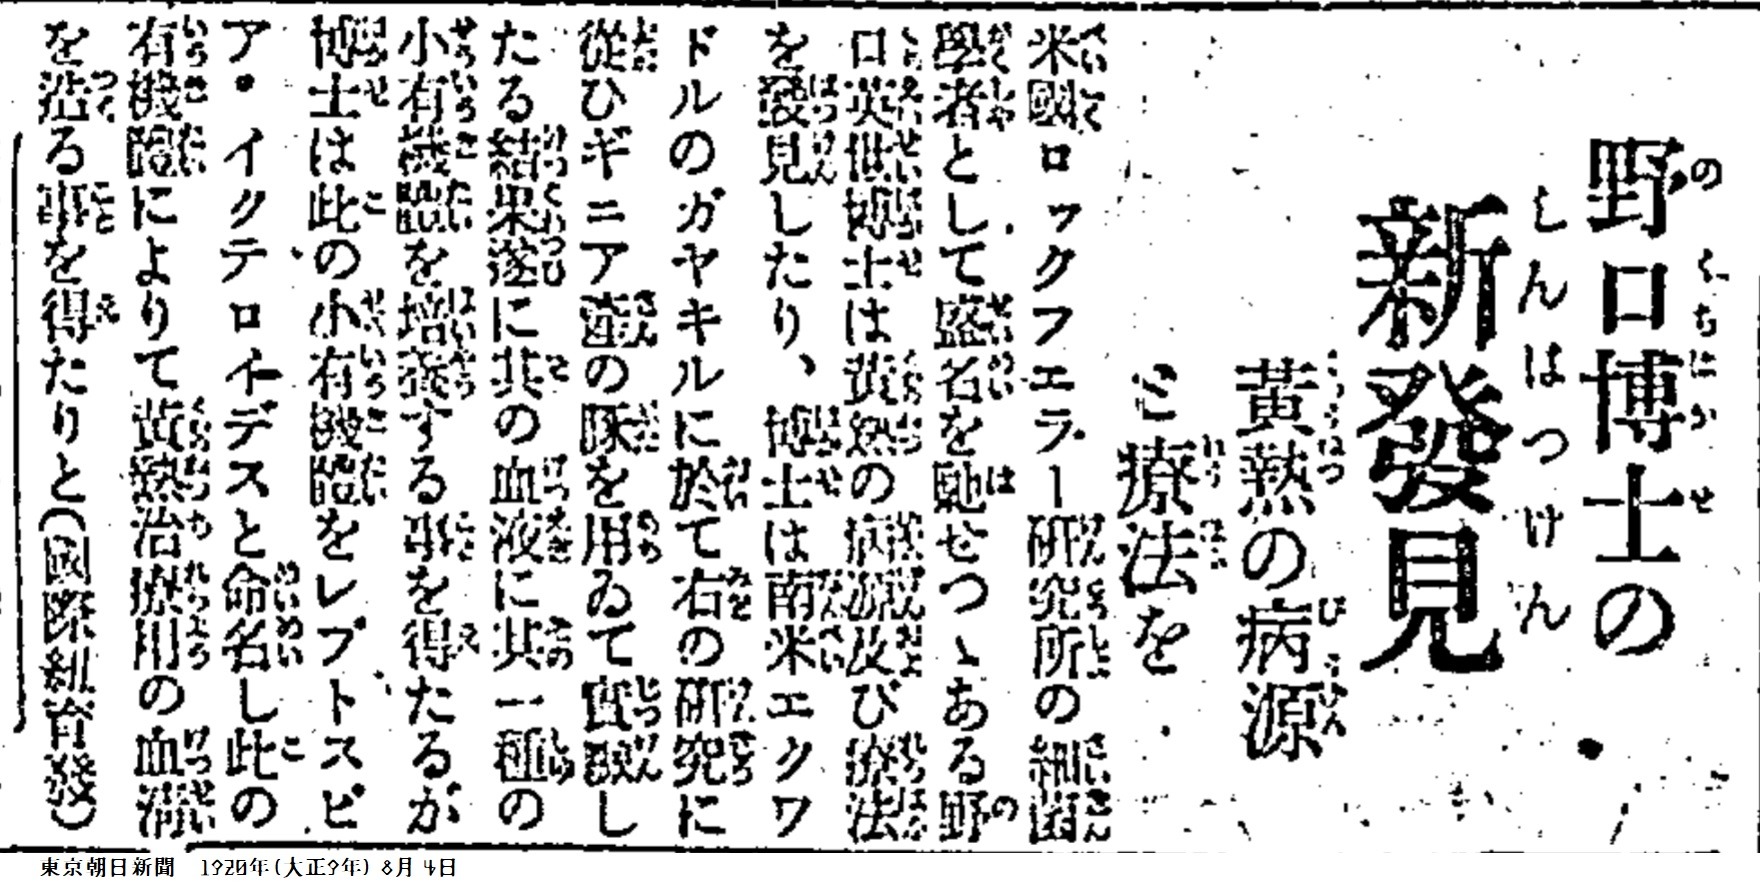 野口博士の
新發見
黄熱の病源
と療法を
米國ロックフエラー研究所の細菌
學者として盛名を馳せつゝある野
口英世博士は黄熱の病源及び療法
を發見したり、博士は南米エクワ
ドルのガヤキルに於て右の研究に
從ひギニア産の豚を用ゐて實驗し
たる結果遂に其の血液に其一種の
小有機體を培養する事を得たるが
博士は此の小有機體をレプトスピ
ア・イクテロイデスと命名し此の
有機體によりて黄熱治療用の血淸
を造る事を得たりと(國際紐育發)
東京朝日新聞 1920年(大正9年) 8月 4日